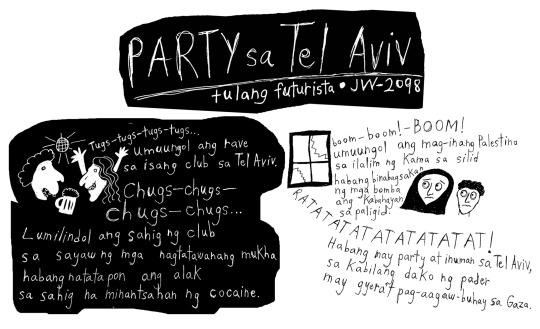 PARTY sa Tel Aviv
tulang futurista • JW-2098
Tugs-tugs-tugs-tugs...
umuungol ang rave
sa isang club sa Tel Aviv.
Chugs-chugs-
chugs-chugs...
Lumilindol ang sahig ng club
sa sayaw ng mga nagtatawanang mukha
habang natatapon ang alak
sa sahig na minantsahan ng cocaine.
boom-boom!-BOOM!
umuungol ang mag-inang Palestino
sa ilalim ng kama sa silid
habang binabagsakan
ng mga bomba
ang kabahayan
sa paligid.
RATATATATATATATATAT!
Habang may party at inuman sa Tel Aviv,
sa kabilang dako ng pader
may gyera't pag-aagaw-buhay sa Gaza.